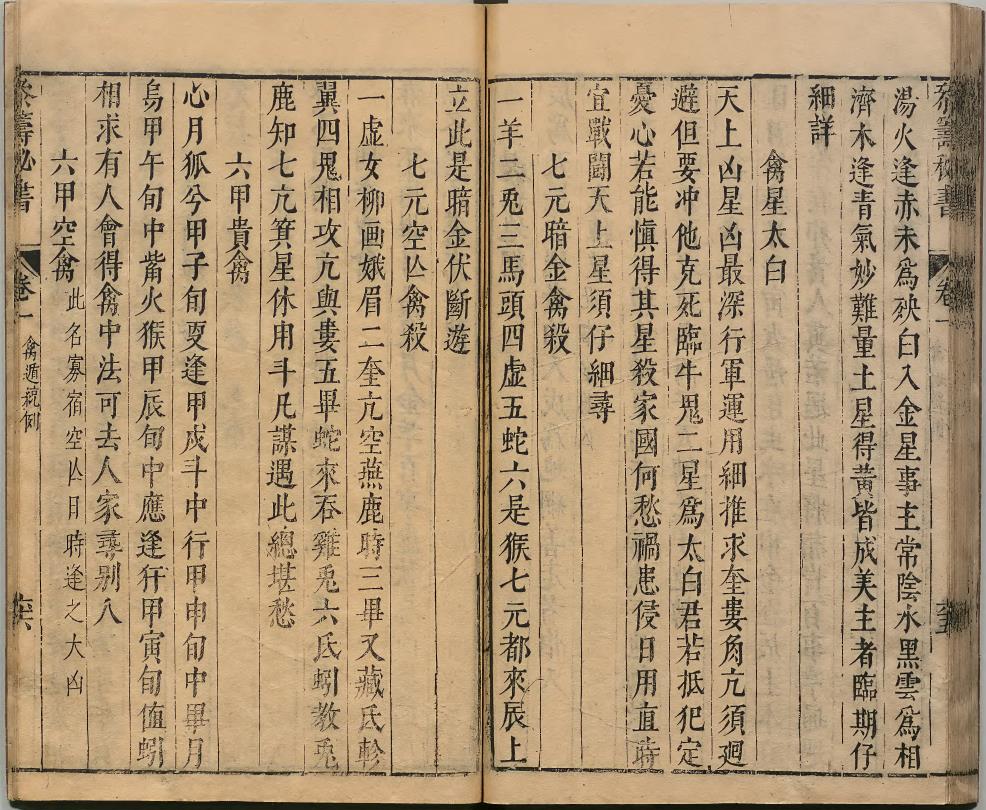 祭籌秘書
卷一
湯火逢赤未為殃白入金星事主常陰水黑雲為相
濟木逢青氣妙難量土星得黃皆成美主者臨期仔
細詳
禽星太白
天上凶星凶最深行軍運用細推求奎婁角亢須廻
避但要冲他克死臨牛鬼二星為太白君若抵犯定
憂心若能慎得其星殺家國何愁禍患侵日用直時
宜戰鬬天上星須仔細尋
七元暗金禽殺
一羊二兎三馬頭四虛五蛇六是猴七元都來辰上
立此是暗金伏斷遊
七元空亾禽殺
一虛女柳画娥眉二奎亢空燕鹿時三畢又藏氐軫
翼四鬼相攻亢與婁五畢蛇來吞雞兎六氐蚓教兎
鹿知七亢箕星休用斗凡謀遇此總堪愁
六甲貴禽
心月狐兮甲子旬更逢甲戍斗中行甲申旬中畢月
烏甲午旬中觜火猴甲辰旬中應逢犴甲寅旬值蚓
相求有人會得禽中法可去人家尋别八
六甲空禽
此名寡宿空亾日時逢之大凶
卷一
禽遁總例
六六